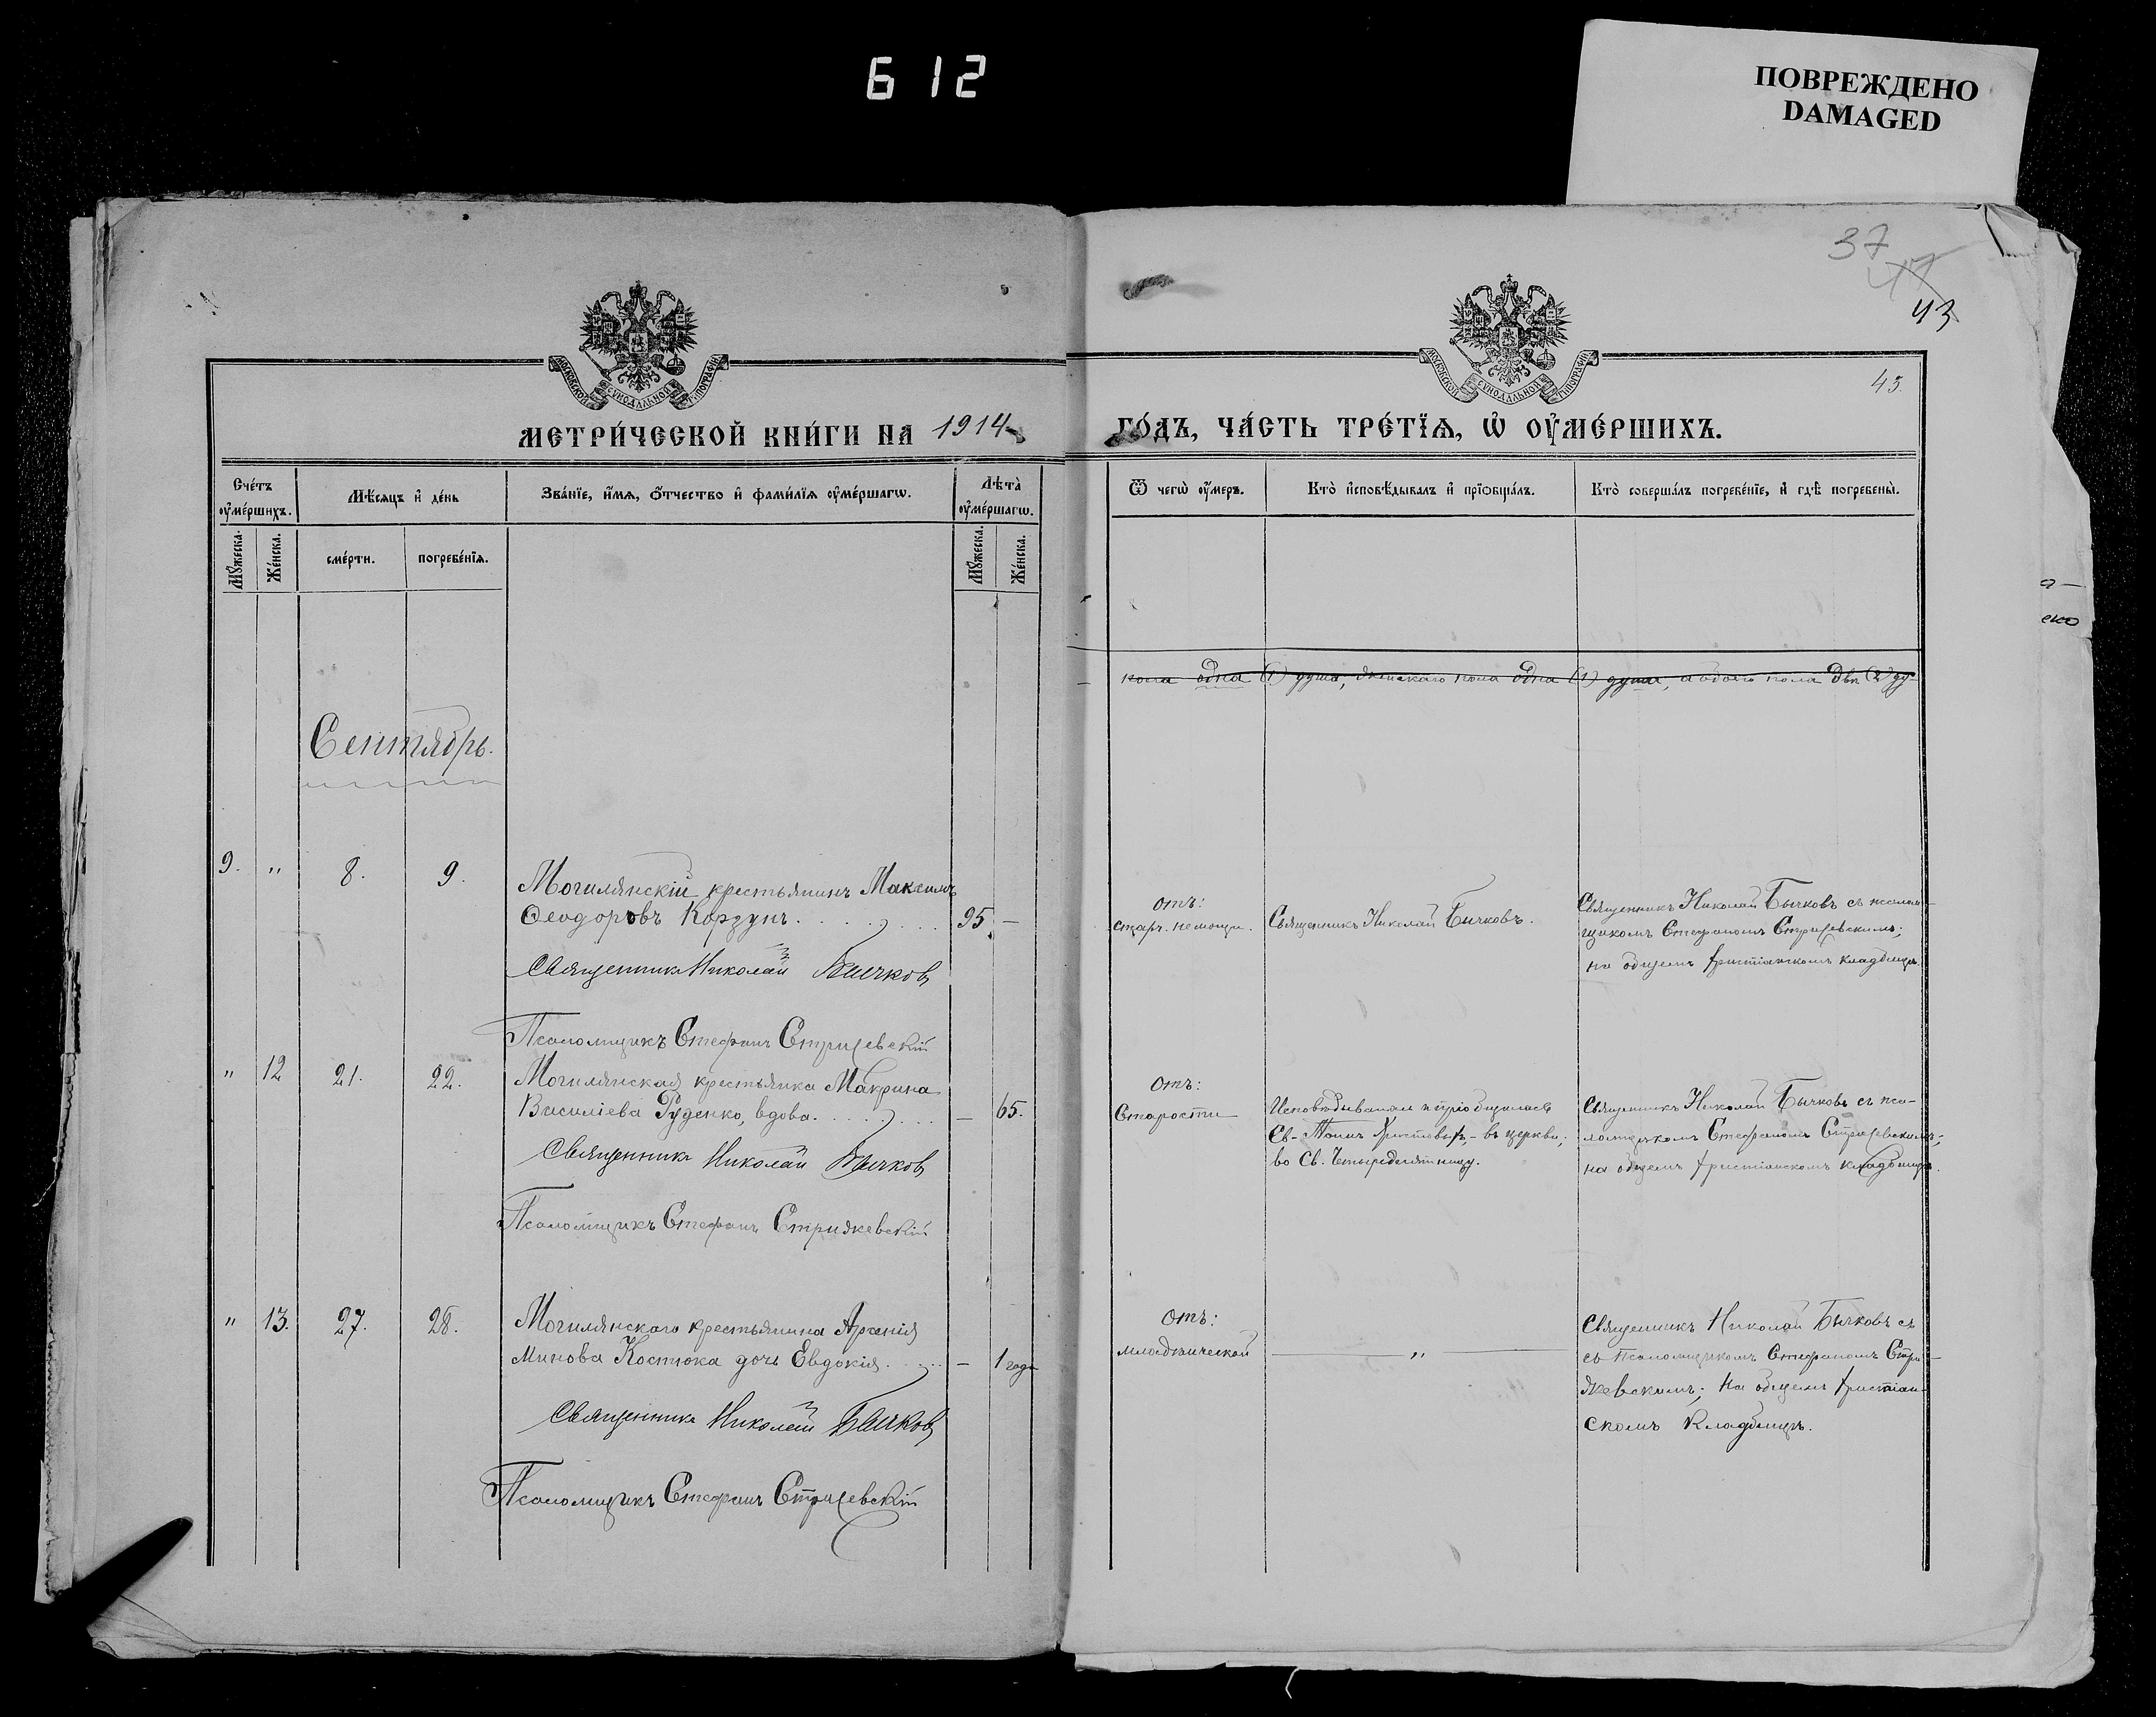 612
ПОВРЕЖДЕНО
DAMAGED
37
47
43
45.
МОСКОВСКОЙ СѴНОДАЛЬНОЙ ТИПОГРАФІИ
МОСКОВСКОЙ СѴНОДАЛЬНОЙ ТИПОГРАФІИ
МЕТРИ́ЧЕСКОЙ КНИ́ГИ НА 1914
ГО́ДЪ, ЧА́СТЬ ТРЕ́ТЇѦ, Ѡ҆ ОУ҆МЕ́РШИХЪ.
Сче́тъ оу҆ме́ршихъ.
Мѣ́сѧцъ и҆ де́нь
Зва́нїе, и҆́мѧ, ѻ҆́тчество и҆ фами́лїѧ оу҆ме́ршагѡ.
Лѣ́та оу҆ме́ршагѡ.
Ѿ чегѡ̀ оу҆́меръ.
Кто̀ и҆сповѣ́дывалъ и҆ прїѡбща́лъ.
Кто̀ соверша́лъ погребе́нїе, и҆ гдѣ̀ погребены̀.
Мꙋ́жеска.
Же́нска.
сме́рти.
погребе́нїѧ.
Мꙋ́жеска.
Же́нска.
пола одна (1) душа, женскаго пола одна (1) душа, а обоего пола двѣ (2) ду-
Сентябрь.
9. " 8. 9.
Могилянскій крестьянинъ Максимъ
Ѳеодоровъ Корзунъ. 95. —
Священникъ Николай Бычковъ
Псаломщикъ Стефанъ Стрижевскій
отъ:
старч. немощи.
Священникъ Николай Бычковъ.
Священникъ Николай Бычковъ съ псалом-
щикомъ Стефаномъ Стрижевскимъ;
на общемъ христіанскомъ кладбищѣ.
" 12 21. 22.
Могилянская крестьянка Макрина
Василіева Руденко, вдова. — 65.
Священникъ Николай Бычковъ
Псаломщикъ Стефанъ Стрижевскій
отъ:
Старости
Исповѣдывалась и пріобщалась
Св. Таинъ Христовыхъ, - въ церкви;
во Св. Четыредесятницу.
Священникъ Николай Бычковъ съ пса-
ломщикомъ Стефаномъ Стрижевскимъ;
на общемъ христіанскомъ кладбищѣ.
" 13. 27. 28.
Могилянскаго крестьянина Арсенія
Минова Костюка дочь Евдокія. — 1 года
Священникъ Николай Бычковъ
Псаломщикъ Стефанъ Стрижевскій
отъ:
младенческой
— " —
Священникъ Николай Бычковъ съ
съ псаломщикомъ Стефаномъ Стри-
жевскимъ; на общемъ христіан-
скомъ кладбищѣ.